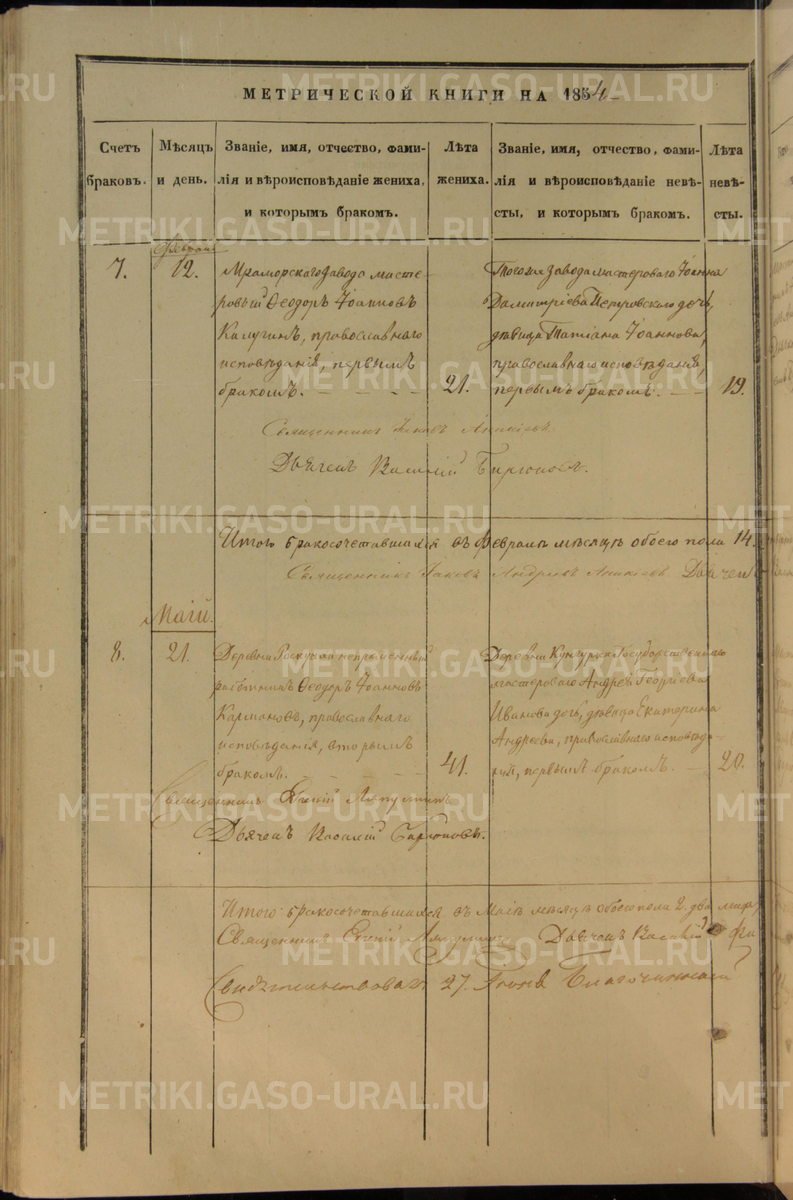 МЕТРИЧЕСКОЙ КНИГИ НА 1854
Счетъ браковъ.
Мѣсяцъ и день.
Званіе, имя, отчество, фами-
лія и вѣроисповѣданіе жениха,
и которымъ бракомъ.
Лѣта жениха.
Званіе, имя, отчество, фами-
лія и вѣроисповѣданіе невѣ-
сты, и которымъ бракомъ.
Лѣта невѣ-
сты.
7.
12.
Мраморскаго Завода масте-
ровый Ѳеодоръ Іоанновъ
Калугинъ, православнаго
исповѣданія, первымъ
бракомъ.
21.
Тогоже Завода мастероваго Іоанна
Димитріева Петровскаго дочь,
дѣвица Татіана Іоаннова,
православнаго исповѣданія,
первымъ бракомъ.
19.
Священникъ Іаковъ
Дьячекъ Василій
Итого бракосочетавшихся въ Февралѣ мѣсяцѣ обоего пола 14.
Священникъ Іаковъ Андреевъ Дьячек
Маій.
8.
21.
Деревни
работникъ Ѳеодоръ Іоанновъ
православнаго
исповѣданія, вторымъ
бракомъ.
41.
Деревни Кунгурки Государственнаго
мастероваго Андрея Георгіева
Иванова дочь, дѣвица Екатерина
Андреева, православнаго исповѣда-
нія, первымъ бракомъ.
20.
Священникъ
Дьячекъ Василій
Итого бракосочетавшихся въ Маіѣ мѣсяцѣ обоего пола 2. два
Священникъ Дьячекъ Василій
Свидѣтельствовалъ 27. Іюня Благочинный
METRIKI.GASO-URAL.RU